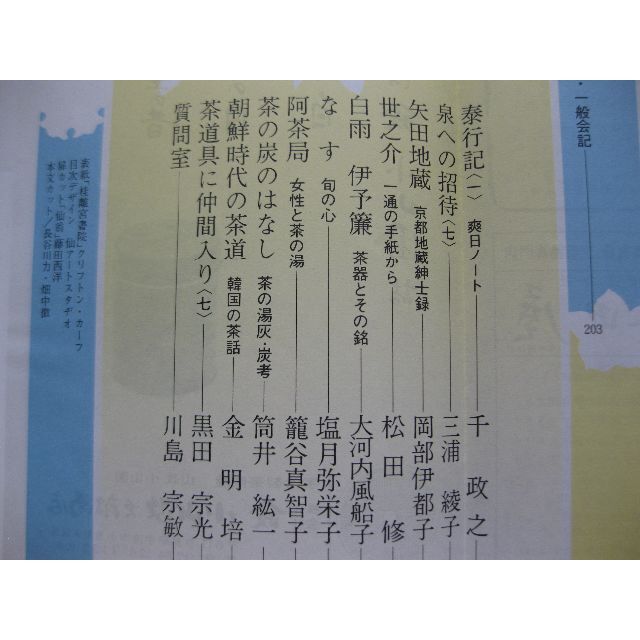 ・一般会記
203
泰行記〈一〉 爽日ノート 千 政之
泉への招待〈七〉 三浦 綾子
矢田地蔵 京都地蔵紳士録 岡部伊都子
世之介 一通の手紙から 松田 修
白雨 伊予簾 茶器とその銘 大河内風船子
なす 旬の心 塩月弥栄子
阿茶局 女性と茶の湯 籠谷真智子
茶の炭のはなし 茶の湯灰・炭考 筒井 紘一
朝鮮時代の茶道 韓国の茶話 金 明培
茶道具に仲間入り〈七〉 黒田 宗光
質問室 川島 宗敏
表紙「桂離宮書院」クリフトン・カーフ
目次デザイン 仙アートスタヂオ
扉カット「仙翁」藤田西洋
本文カット/長谷川力・畑中徹